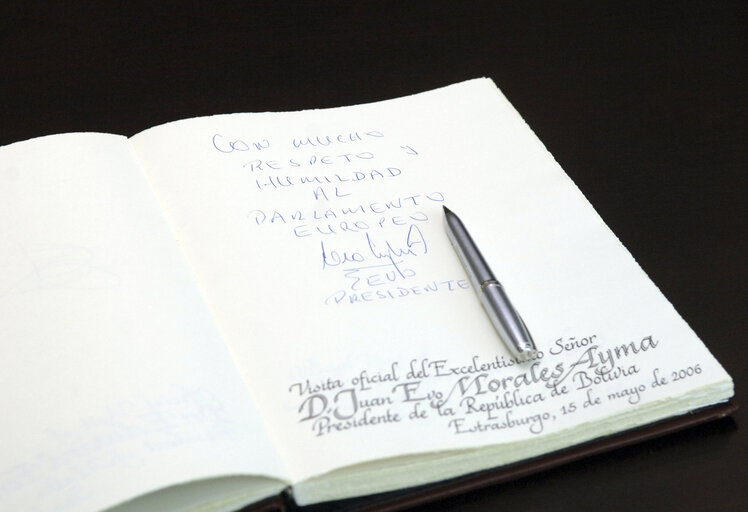 CON MUCHO
RESPETO Y
HUMILDAD
AL
PARLAMENTO
EUROPEO
EVO
PRESIDENTE
Visita oficial del Excelentísimo Señor
D. Juan Evo Morales Ayma
Presidente de la República de Bolivia
Estrasburgo, 15 de mayo de 2006